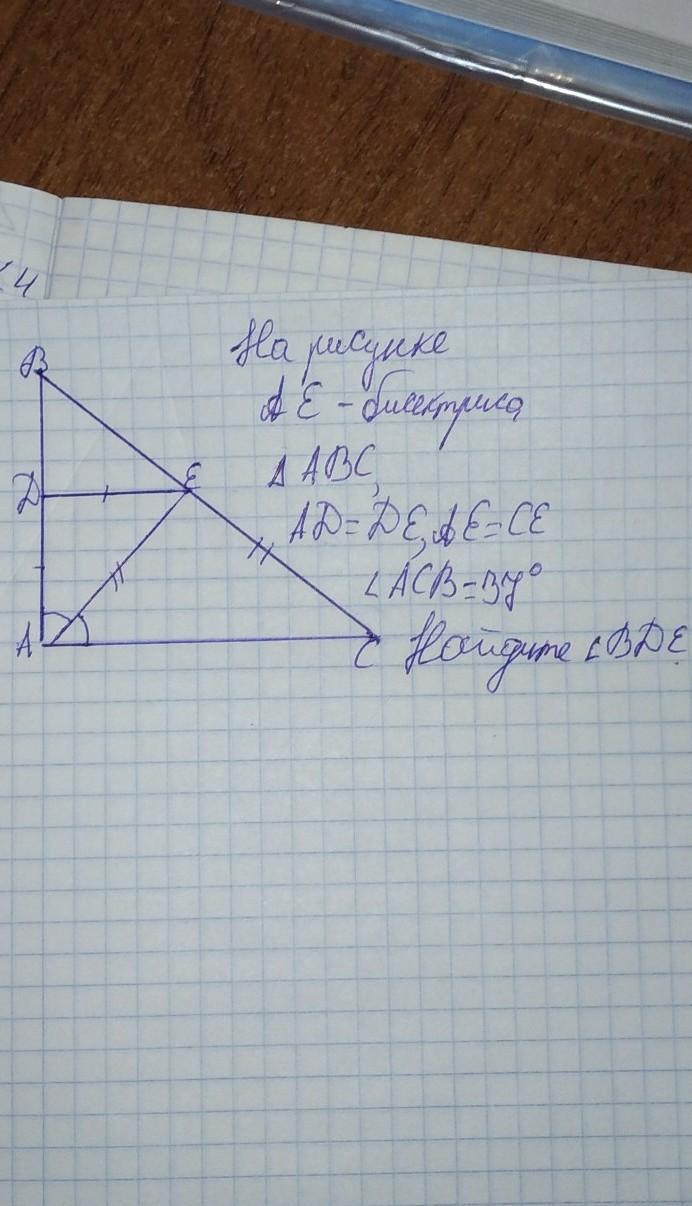 4
На рисунке
AE - биссектриса
Δ ABC,
AD=DE, AE=CE
∠ACB=37°
Найдите ∠BDE
B
D
E
A
C